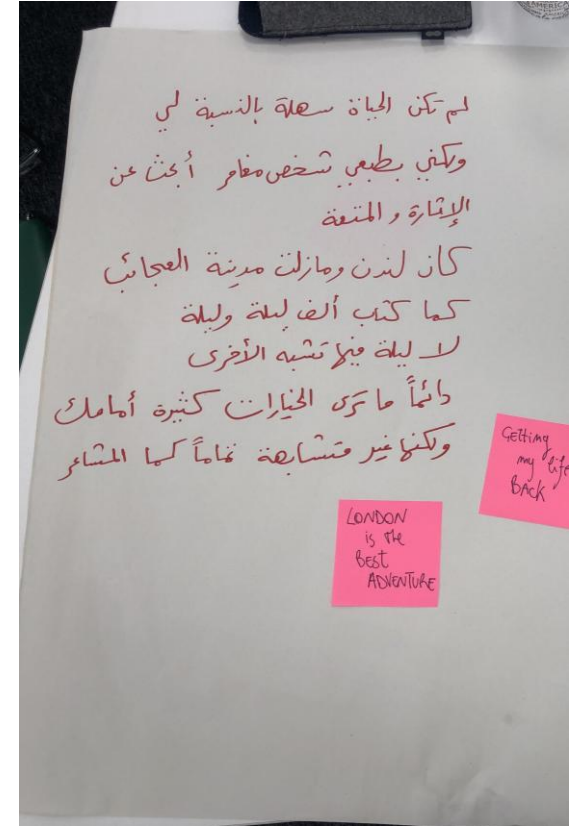 لم تكن الحياة سهلة بالنسبة لي
ولكني بطبعي شخص مغامر أبحث عن
الإثارة والمتعة
كان لندن ومازلت مدينة العجائب
كما كتب ألف ليلة وليلة
لا ليلة فيها تشبه الأخرى
دائماً ما ترى الخيارات كثيرة أمامك
ولكنها غير متشابهة تماماً كما المشاعر
GETTING
my life
BACK
LONDON
is the
BEST
ADVENTURE
AMERICA